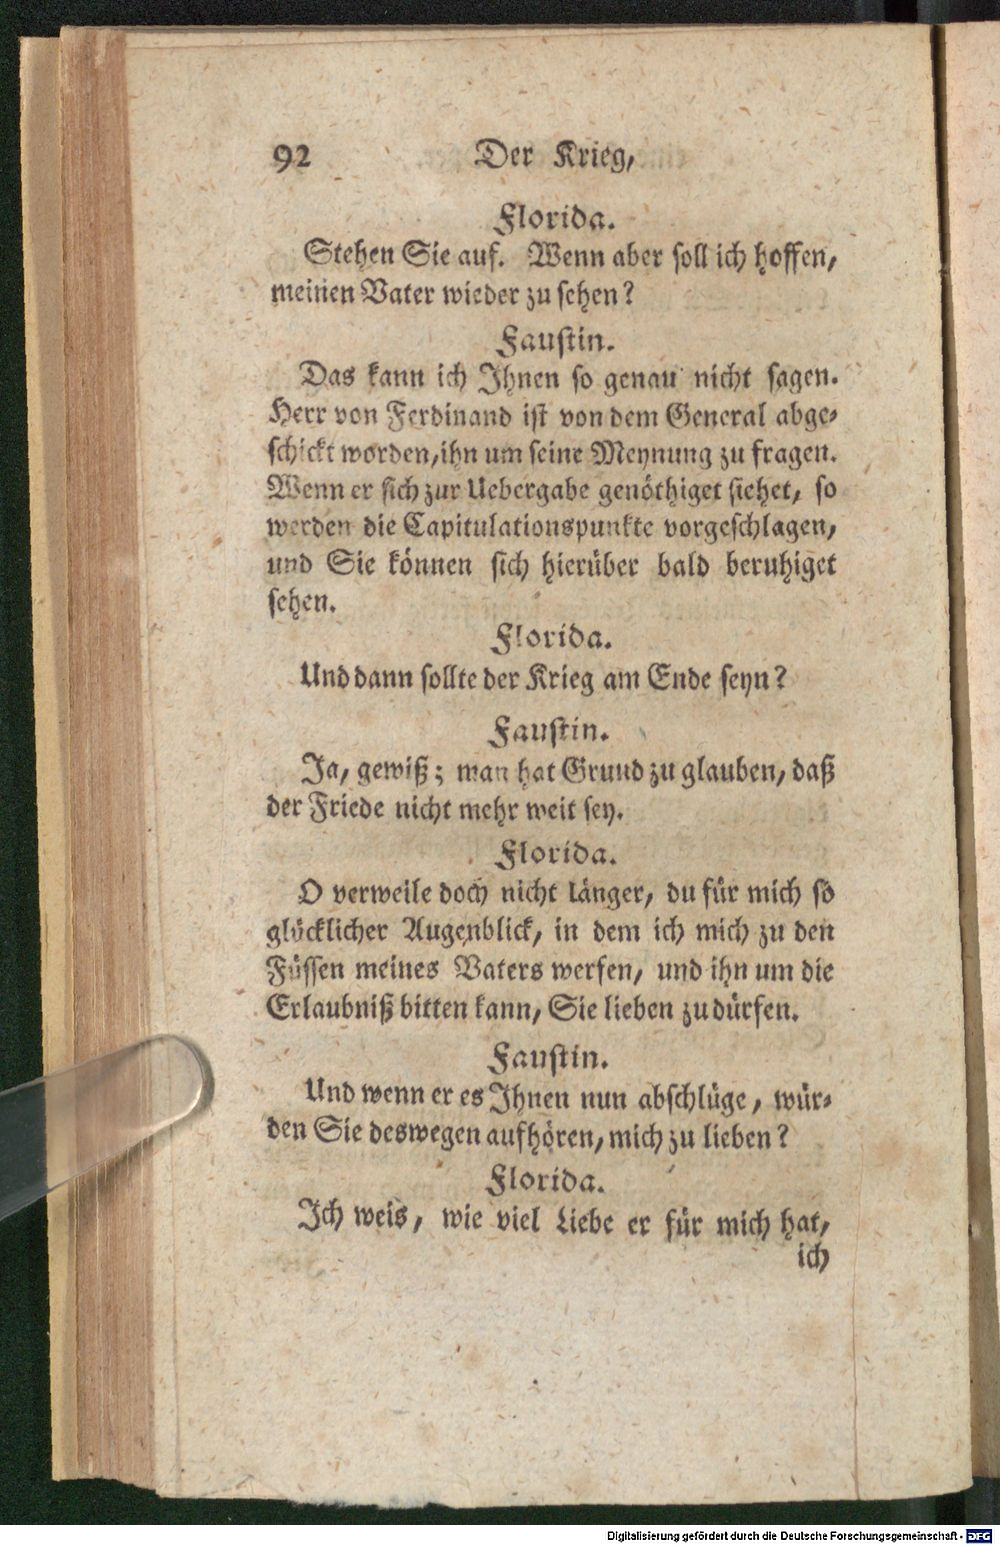 92 Der Krieg,
Florida.
Stehen Sie auf. Wenn aber soll ich hoffen,
meinen Vater wieder zu sehen?
Faustin.
Das kann ich Ihnen so genau nicht sagen.
Herr von Ferdinand ist von dem General abge-
schickt worden, ihn um seine Meynung zu fragen.
Wenn er sich zur Uebergabe genöthiget siehet, so
werden die Capitulationspunkte vorgeschlagen,
und Sie können sich hierüber bald beruhiget
sehen.
Florida.
Und dann sollte der Krieg am Ende seyn?
Faustin.
Ja, gewiß; man hat Grund zu glauben, daß
der Friede nicht mehr weit sey.
Florida.
O verweile doch nicht länger, du für mich so
glücklicher Augenblick, in dem ich mich zu den
Füssen meines Vaters werfen, und ihn um die
Erlaubniß bitten kann, Sie lieben zu dürfen.
Faustin.
Und wenn er es Ihnen nun abschlüge, wür-
den Sie deswegen aufhören, mich zu lieben?
Florida.
Ich weis, wie viel Liebe er für mich hat,
ich
Digitalisierung gefördert durch die Deutsche Forschungsgemeinschaft - DFG